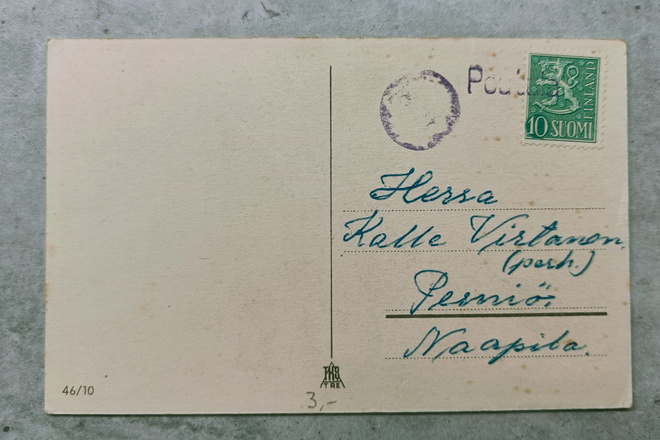 FINLAND
10 SUOMI
Herra
Kalle Virtanen.
(perh.)
Perniö.
Naapila.
TRE
46/10
3,-